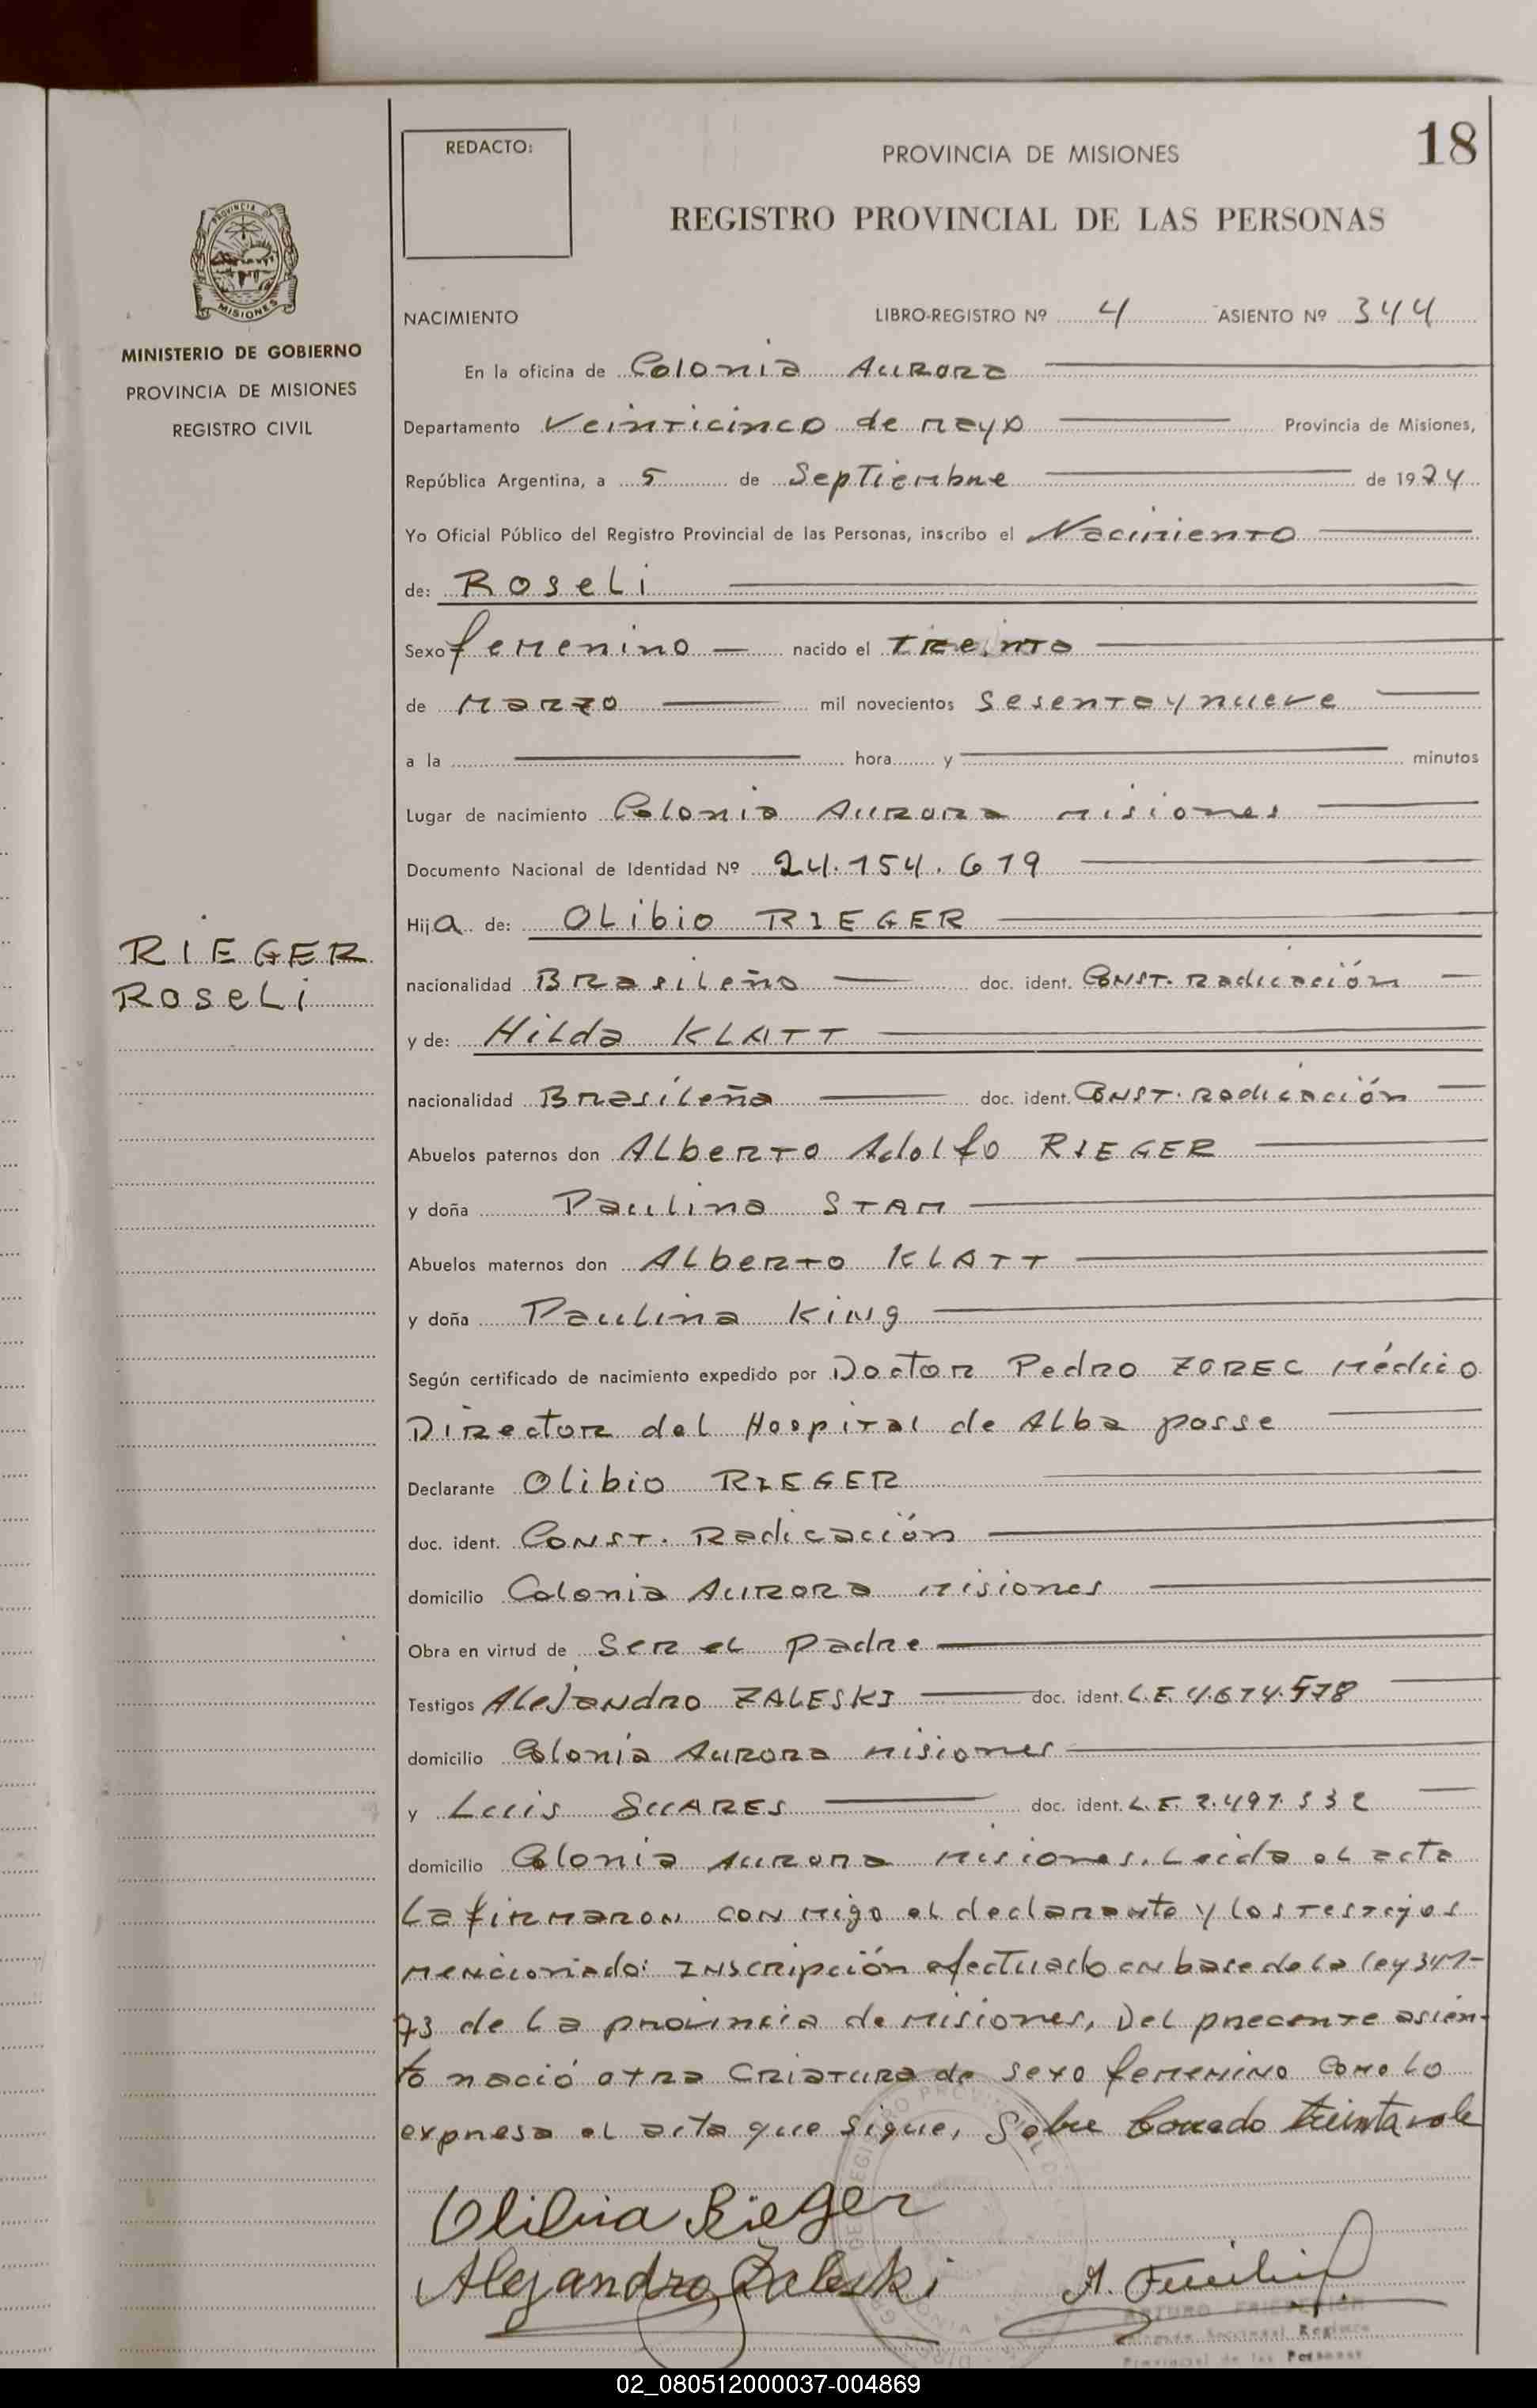 REDACTO:
PROVINCIA DE MISIONES
18
REGISTRO PROVINCIAL DE LAS PERSONAS
PROVINCIA DE
MISIONES
MINISTERIO DE GOBIERNO
PROVINCIA DE MISIONES
REGISTRO CIVIL
NACIMIENTO LIBRO-REGISTRO Nº 4 ASIENTO Nº 344
En la oficina de Colonia Aurora
Departamento Veinticinco de mayo Provincia de Misiones,
República Argentina, a 5 de Septiembre de 1974
Yo Oficial Público del Registro Provincial de las Personas, inscribo el Nacimiento
de: Roseli
Sexo femenino nacido el treinta
de Marzo mil novecientos sesenta y nueve
a la hora y minutos
Lugar de nacimiento Colonia Aurora misiones
Documento Nacional de Identidad Nº 24.154.619
Hija de: OLibio RIEGER
RIEGER
Roseli
nacionalidad Brasileño doc. ident. Const. Radicación
y de: Hilda KLATT
nacionalidad Brasileña doc. ident. Const. Radicación
Abuelos paternos don Alberto Adolfo RIEGER
y doña Paulina STAM
Abuelos maternos don Alberto KLATT
y doña Paulina King
Según certificado de nacimiento expedido por Doctor Pedro ZOREC Médico
Director del Hospital de Alba posse
Declarante Olibio RIEGER
doc. ident. Const. Radicación
domicilio Colonia Aurora misiones
Obra en virtud de Ser el padre
Testigos Alejandro ZALESKI doc. ident. L.E. 4.614.578
domicilio Colonia Aurora misiones
y Luis SUARES doc. ident. L.E. 2.497.332
domicilio Colonia Aurora misiones. Leida el acta
La firmaron con migo el declarante y los testigos
mencionado: Inscripción efectuado en base de la ley 347-
73 de la provincia de misiones, Del precente asien-
to nació otra criatura de sexo femenino como lo
expresa el acta que sigue, Sobre borrado treinta vale
Olibia Rieger
Alejandro Zaleski
Provincial de las Personas
02_080512000037-004869